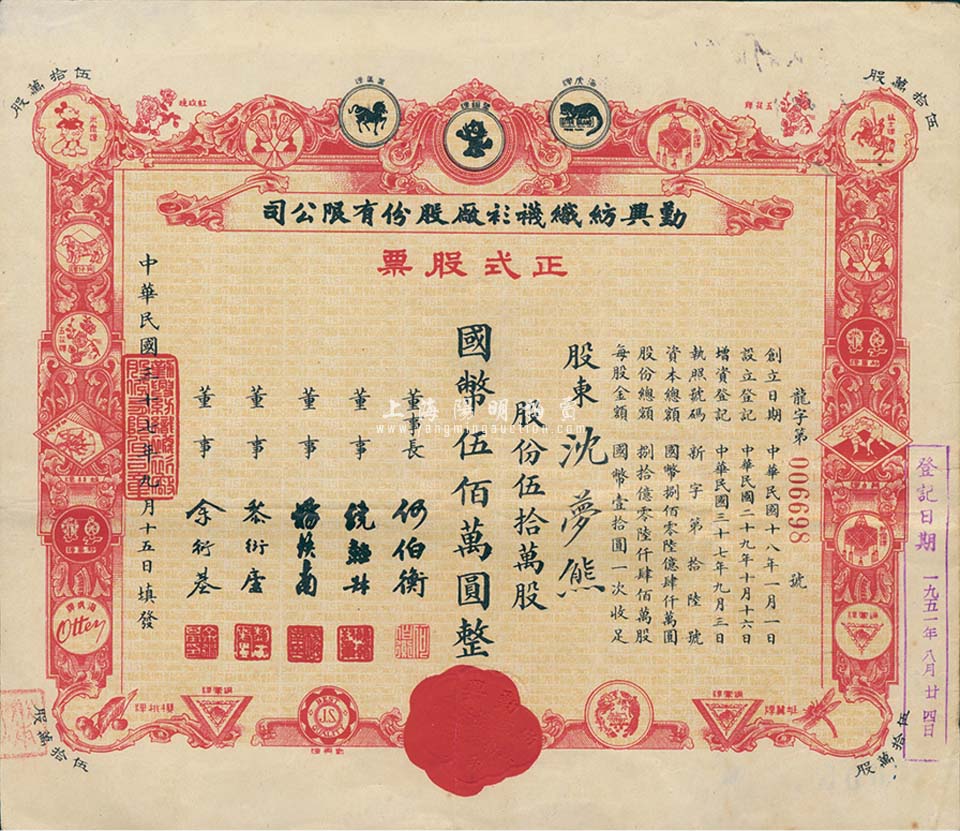 伍拾萬股
伍拾萬股
米鹿牌
玫瑰牌
海虎牌
五福牌
勤興紡織襪衫廠股份有限公司
正式股票
龍字第 006698 號
創立日期 中華民國十八年一月一日
設立登記 中華民國二十九年十月十六日
增資登記 中華民國三十七年九月三日
執照號碼 新字第拾陸號
資本總額 國幣捌佰零陸億肆仟萬圓
股份總額 捌拾億零陸仟肆佰萬股
每股金額 國幣壹拾圓一次收足
股東 沈夢熊
股份伍拾萬股
國幣伍佰萬圓整
董事長 何伯衡
董事
董事 楊煥南
董事 黎衍廬
董事 余衍基
中華民國三十七年九月十五日填發
登記日期 一九五一年八月廿四日
上海陽明拍賣
www.yangmingauction.com
海虎牌
Otter
櫻桃牌
JS
勤興牌
伍拾萬股
伍拾萬股